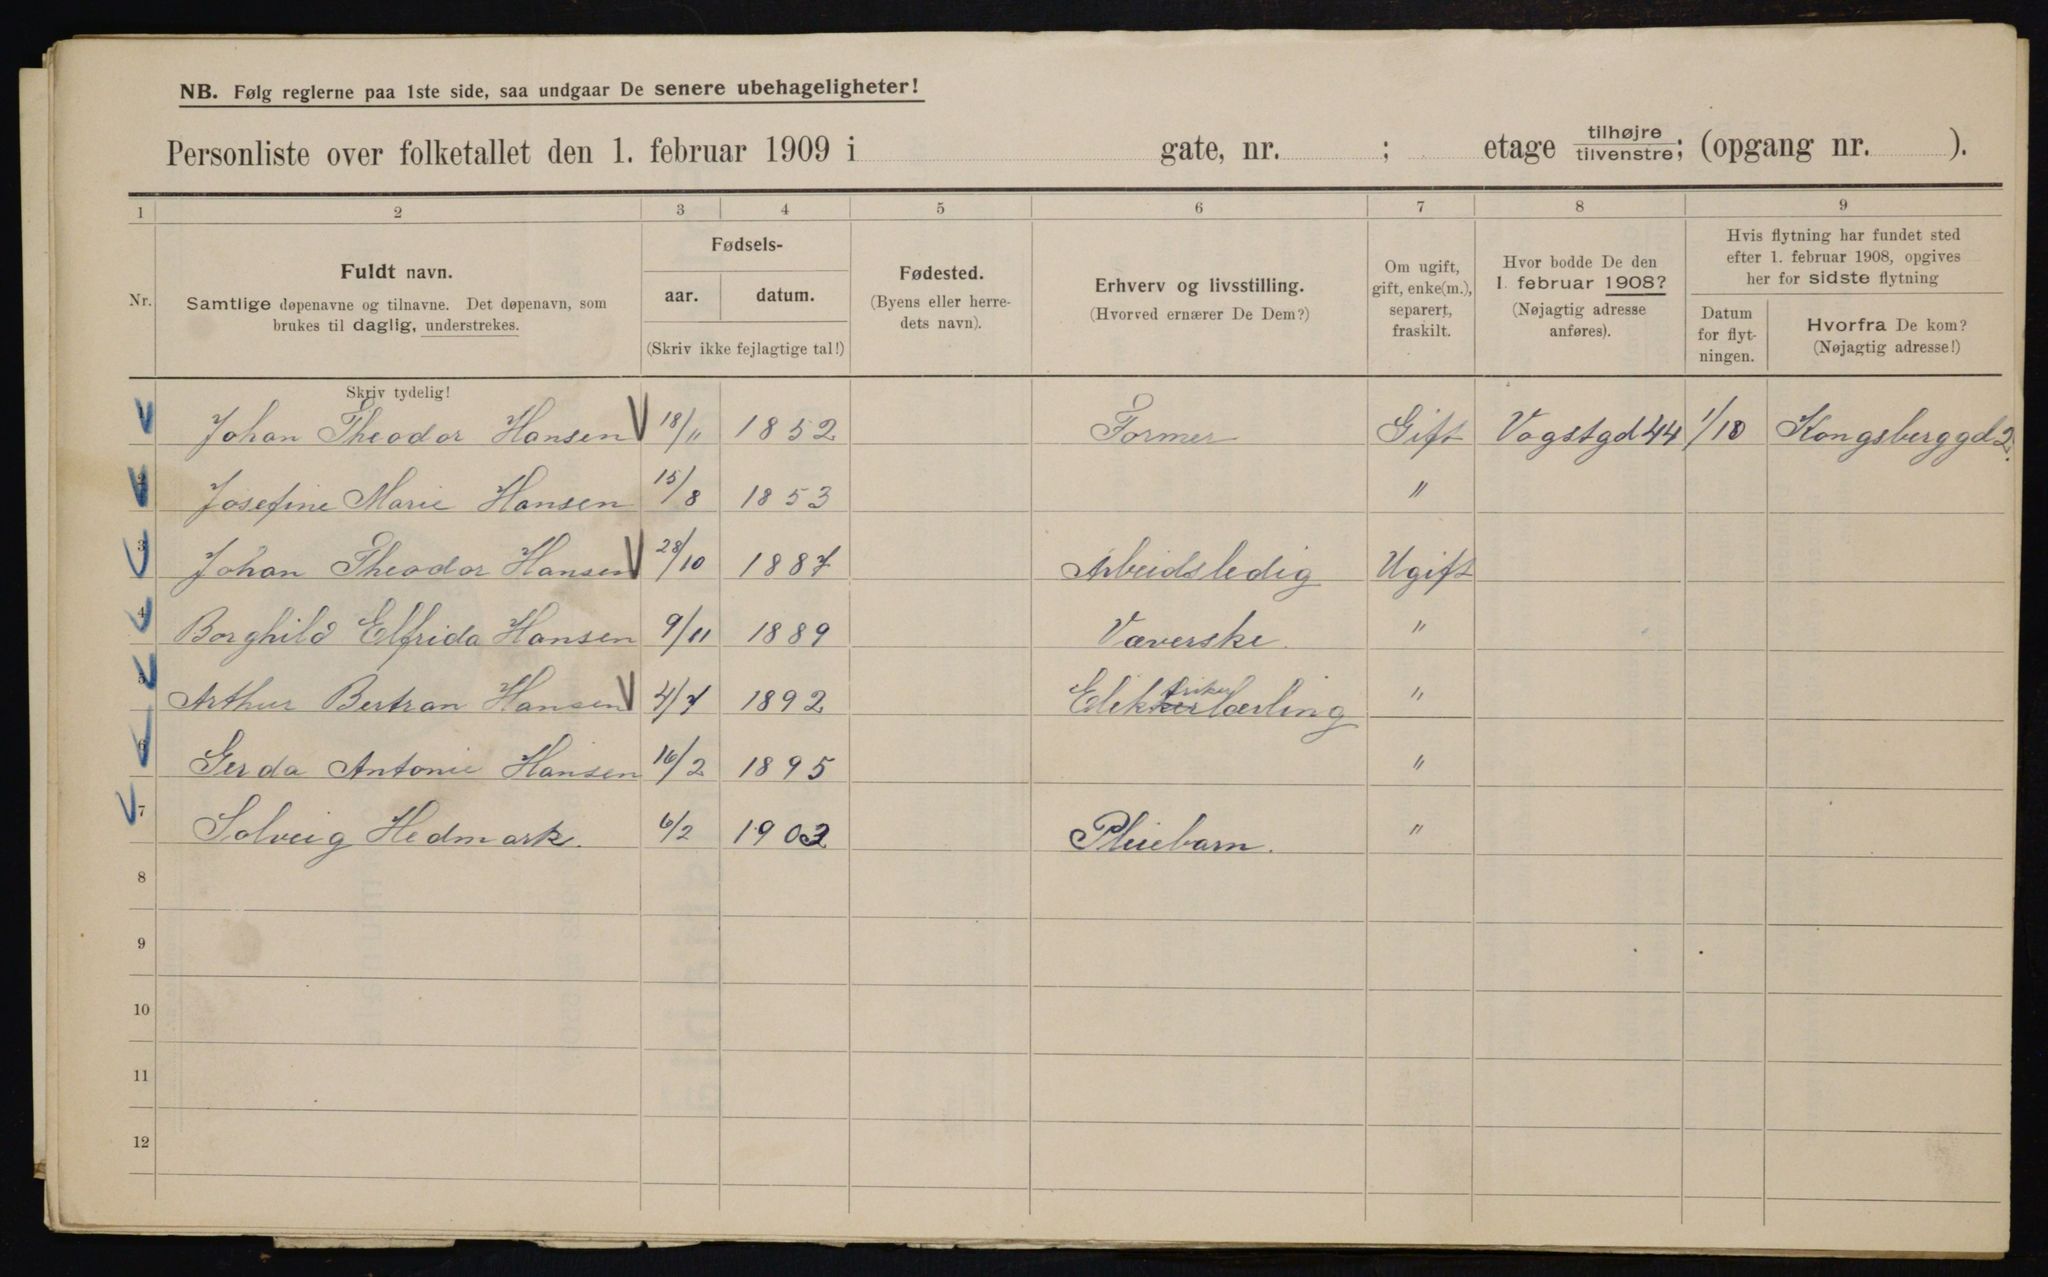 NB. Følg reglerne paa 1ste side, saa undgaar De senere ubehageligheter!
Personliste over folketallet den 1. februar 1909 i gate, nr. ; etage tilhøjre/tilvenstre; (opgang nr. ).
1 2 3 4 5 6 7 8 9
Nr.
Fuldt navn.
Samtlige døpenavne og tilnavne. Det døpenavn, som
brukes til daglig, understrekes.
Fødsels-
aar. datum.
(Skriv ikke fejlagtige tal!)
Fødested.
(Byens eller herre-
dets navn).
Erhverv og livsstilling.
(Hvorved ernærer De Dem?)
Om ugift,
gift, enke(m.),
separert,
fraskilt.
Hvor bodde De den
1. februar 1908?
(Nøjagtig adresse
anføres).
Hvis flytning har fundet sted
efter 1. februar 1908, opgives
her for sidste flytning
Datum
for flyt-
ningen.
Hvorfra De kom?
(Nøjagtig adresse!)
Skriv tydelig!
1 Johan Theodor Hansen 18/11 1852 Former Gift Vogstgd 44 1/10 Kongsberggd 2.
2 Josefine Marie Hansen 15/8 1853 "
3 Johan Theodor Hansen 28/10 1887 Arbeidsledig Ugift
4 Borghild Elfrida Hansen 9/11 1889 Væverske. "
5 Arthur Bertran Hansen 4/7 1892 Elektrikerlærling "
6 Gerda Antonie Hansen 16/2 1895 "
7 Solveig Hedmark. 6/2 1902 Pleiebarn. "
8
9
10
11
12